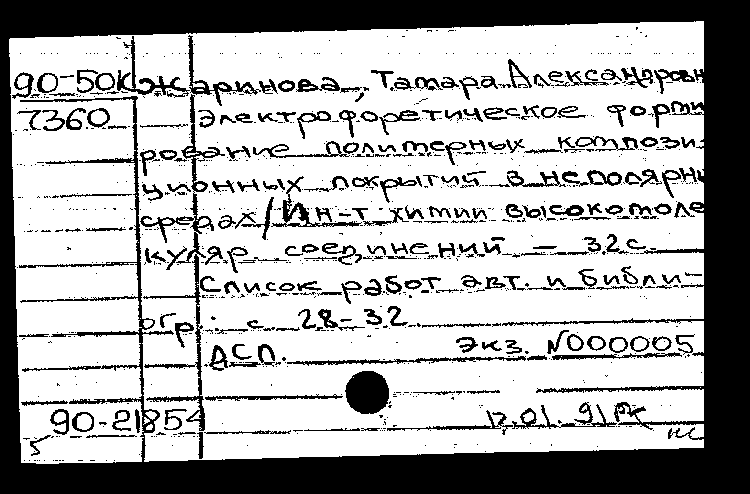 90-50К Жаринова, Тамара Александровн
7360 Электрофоретическое форми
рование полимерных компози-
ционных покрытий в неполярны
средах / Ин-т химии высокомоле
куляр. соединений – 32 с.
Список работ авт. и библи-
огр.: с 28-32
ДСП. Экз. N000005
90-21854 17.01.91
5